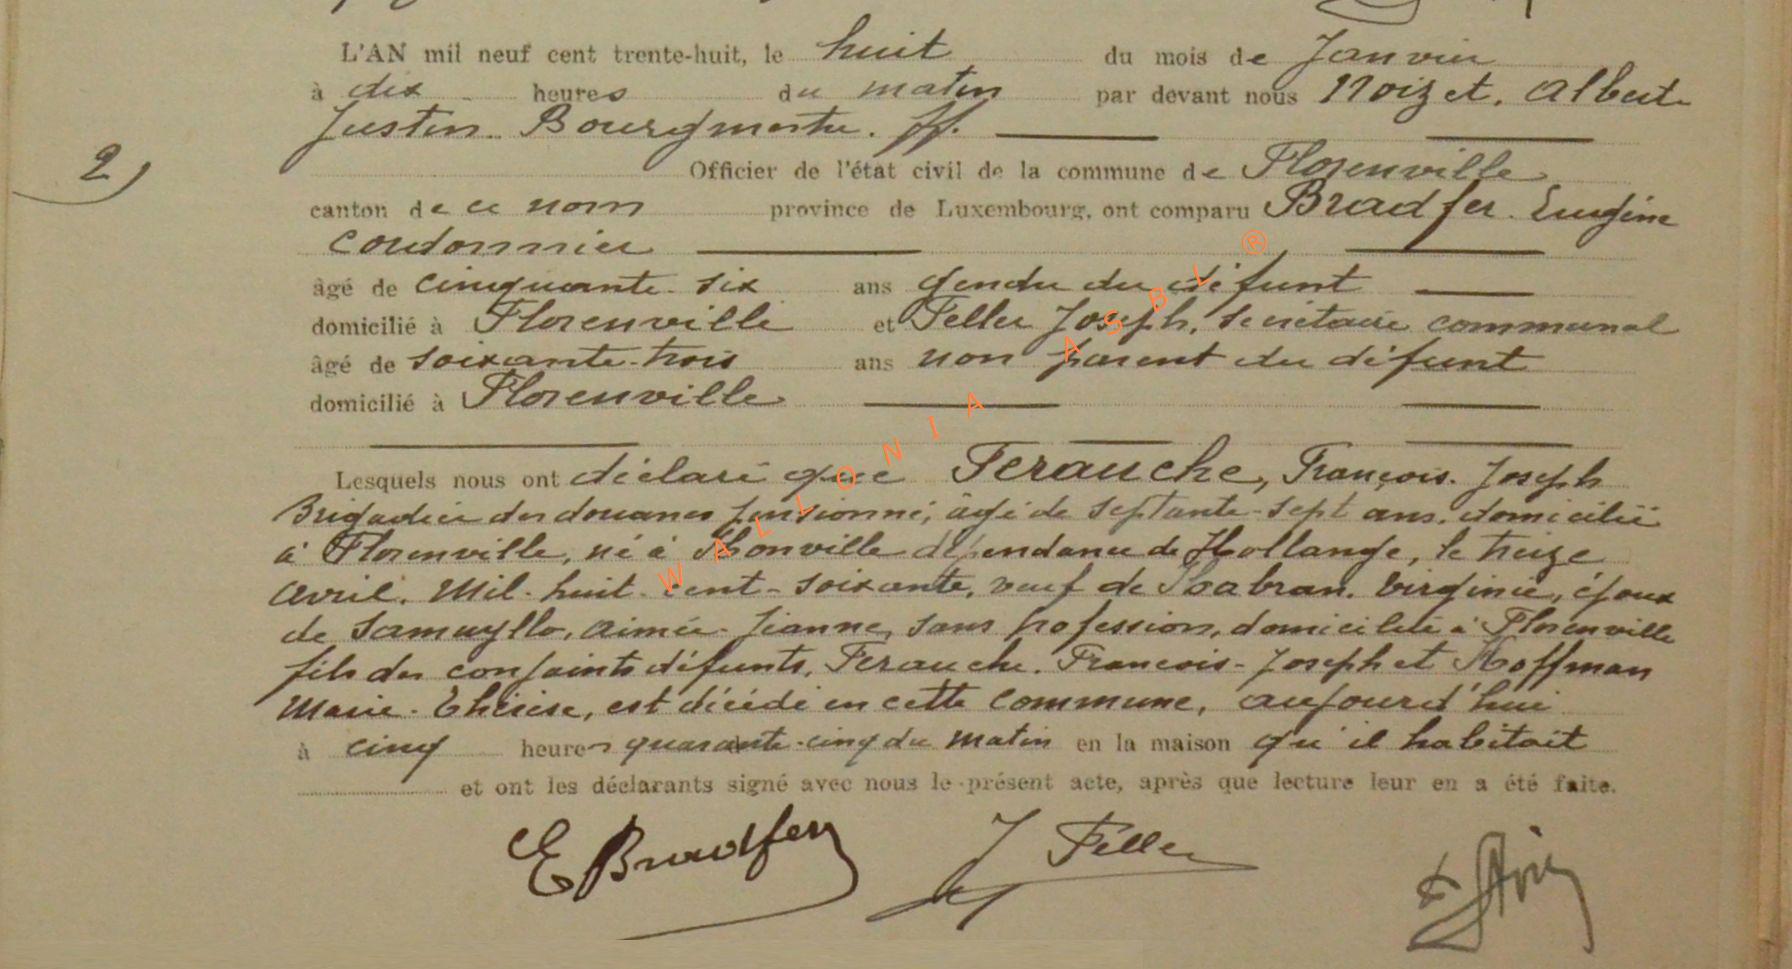 L'AN mil neuf cent trente-huit, le huit du mois de Janvier
à dix heures du matin par devant nous Noizet, Albert
Justin. Bourgmestre. ff.
2)
Officier de l'état civil de la commune de Florenville
canton de ce nom province de Luxembourg, ont comparu Bradfer. Eugène
cordonnier
âgé de cinquante-six ans gendre du défunt
domicilié à Florenville et Feller Joseph, secrétaire communal
âgé de soixante-trois ans non parent du défunt
domicilié à Florenville
Lesquels nous ont déclaré que Ferauche, François-Joseph
Brigadier des douanes pensionné, âgé de septante-sept ans, domicilié
à Florenville, né à Honville dépendance de Hollange, le treize
avril, Mil-huit-cent-soixante, veuf de Habran. Virginie, époux
de Samuyllo, Aimée-Jeanne, sans profession, domiciliée à Florenville
fils des conjoints défunts, Ferauche. François-Joseph et Hoffman
Marie-Thérèse, est décédé en cette commune, aujourd'hui
à cinq heures quarante-cinq du matin en la maison qu'il habitait
et ont les déclarants signé avec nous le présent acte, après que lecture leur en a été faite.
E Bradfer J Feller
WALLONIA ASBL ®